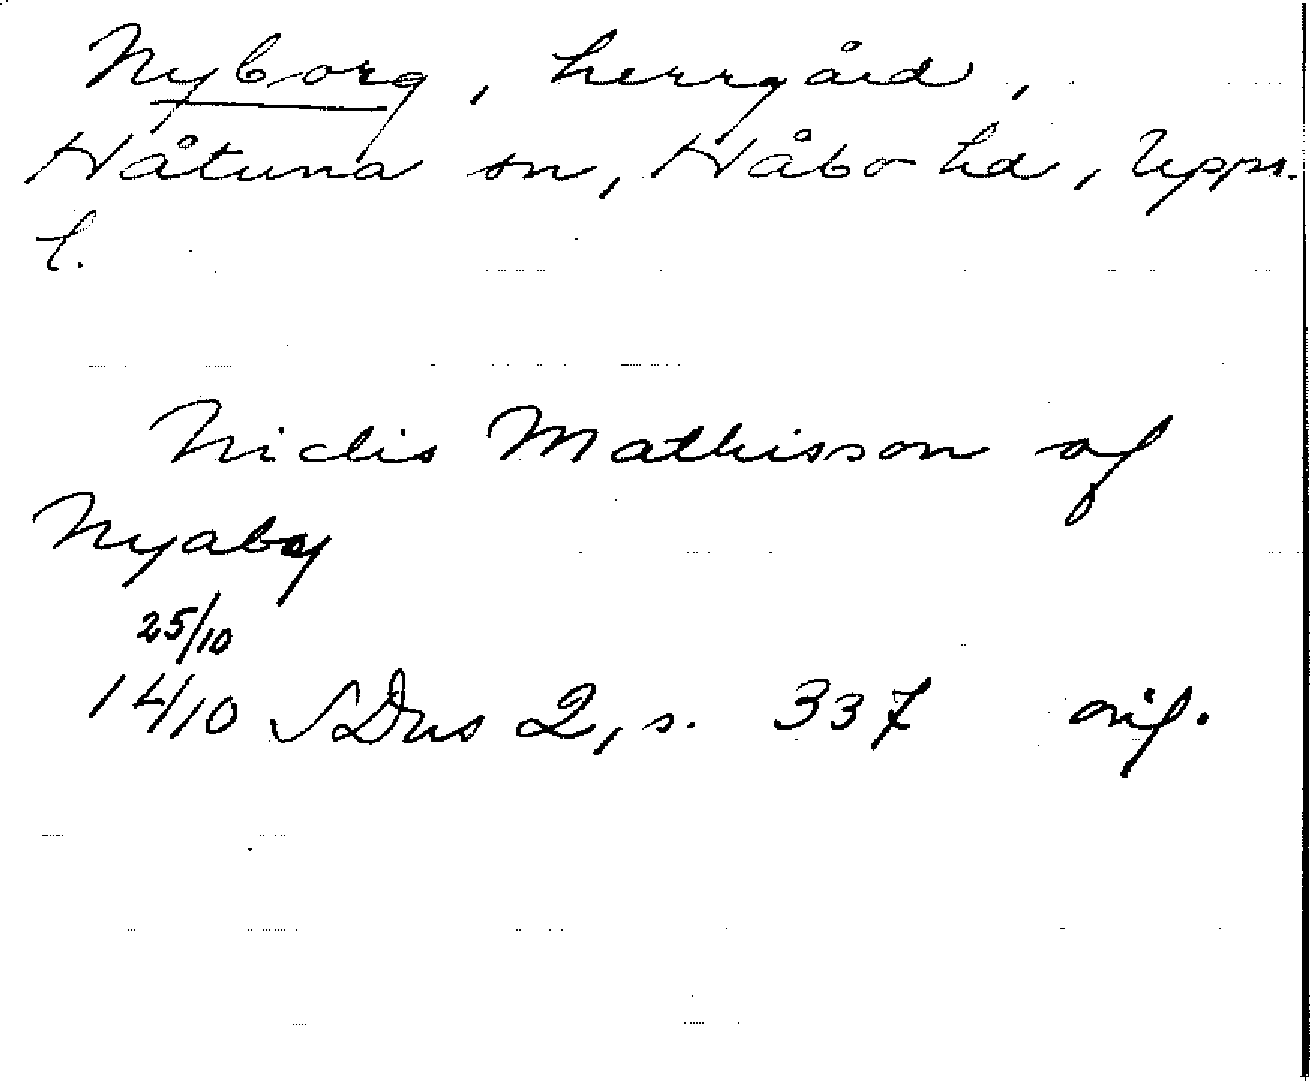 Nyborg, herrgård,
Håtuna sn, Håbo hd, Upps.
l.
Niclis Mathisson af
Nyaby
25/10
1410 SDns 2, s. 337 orig.